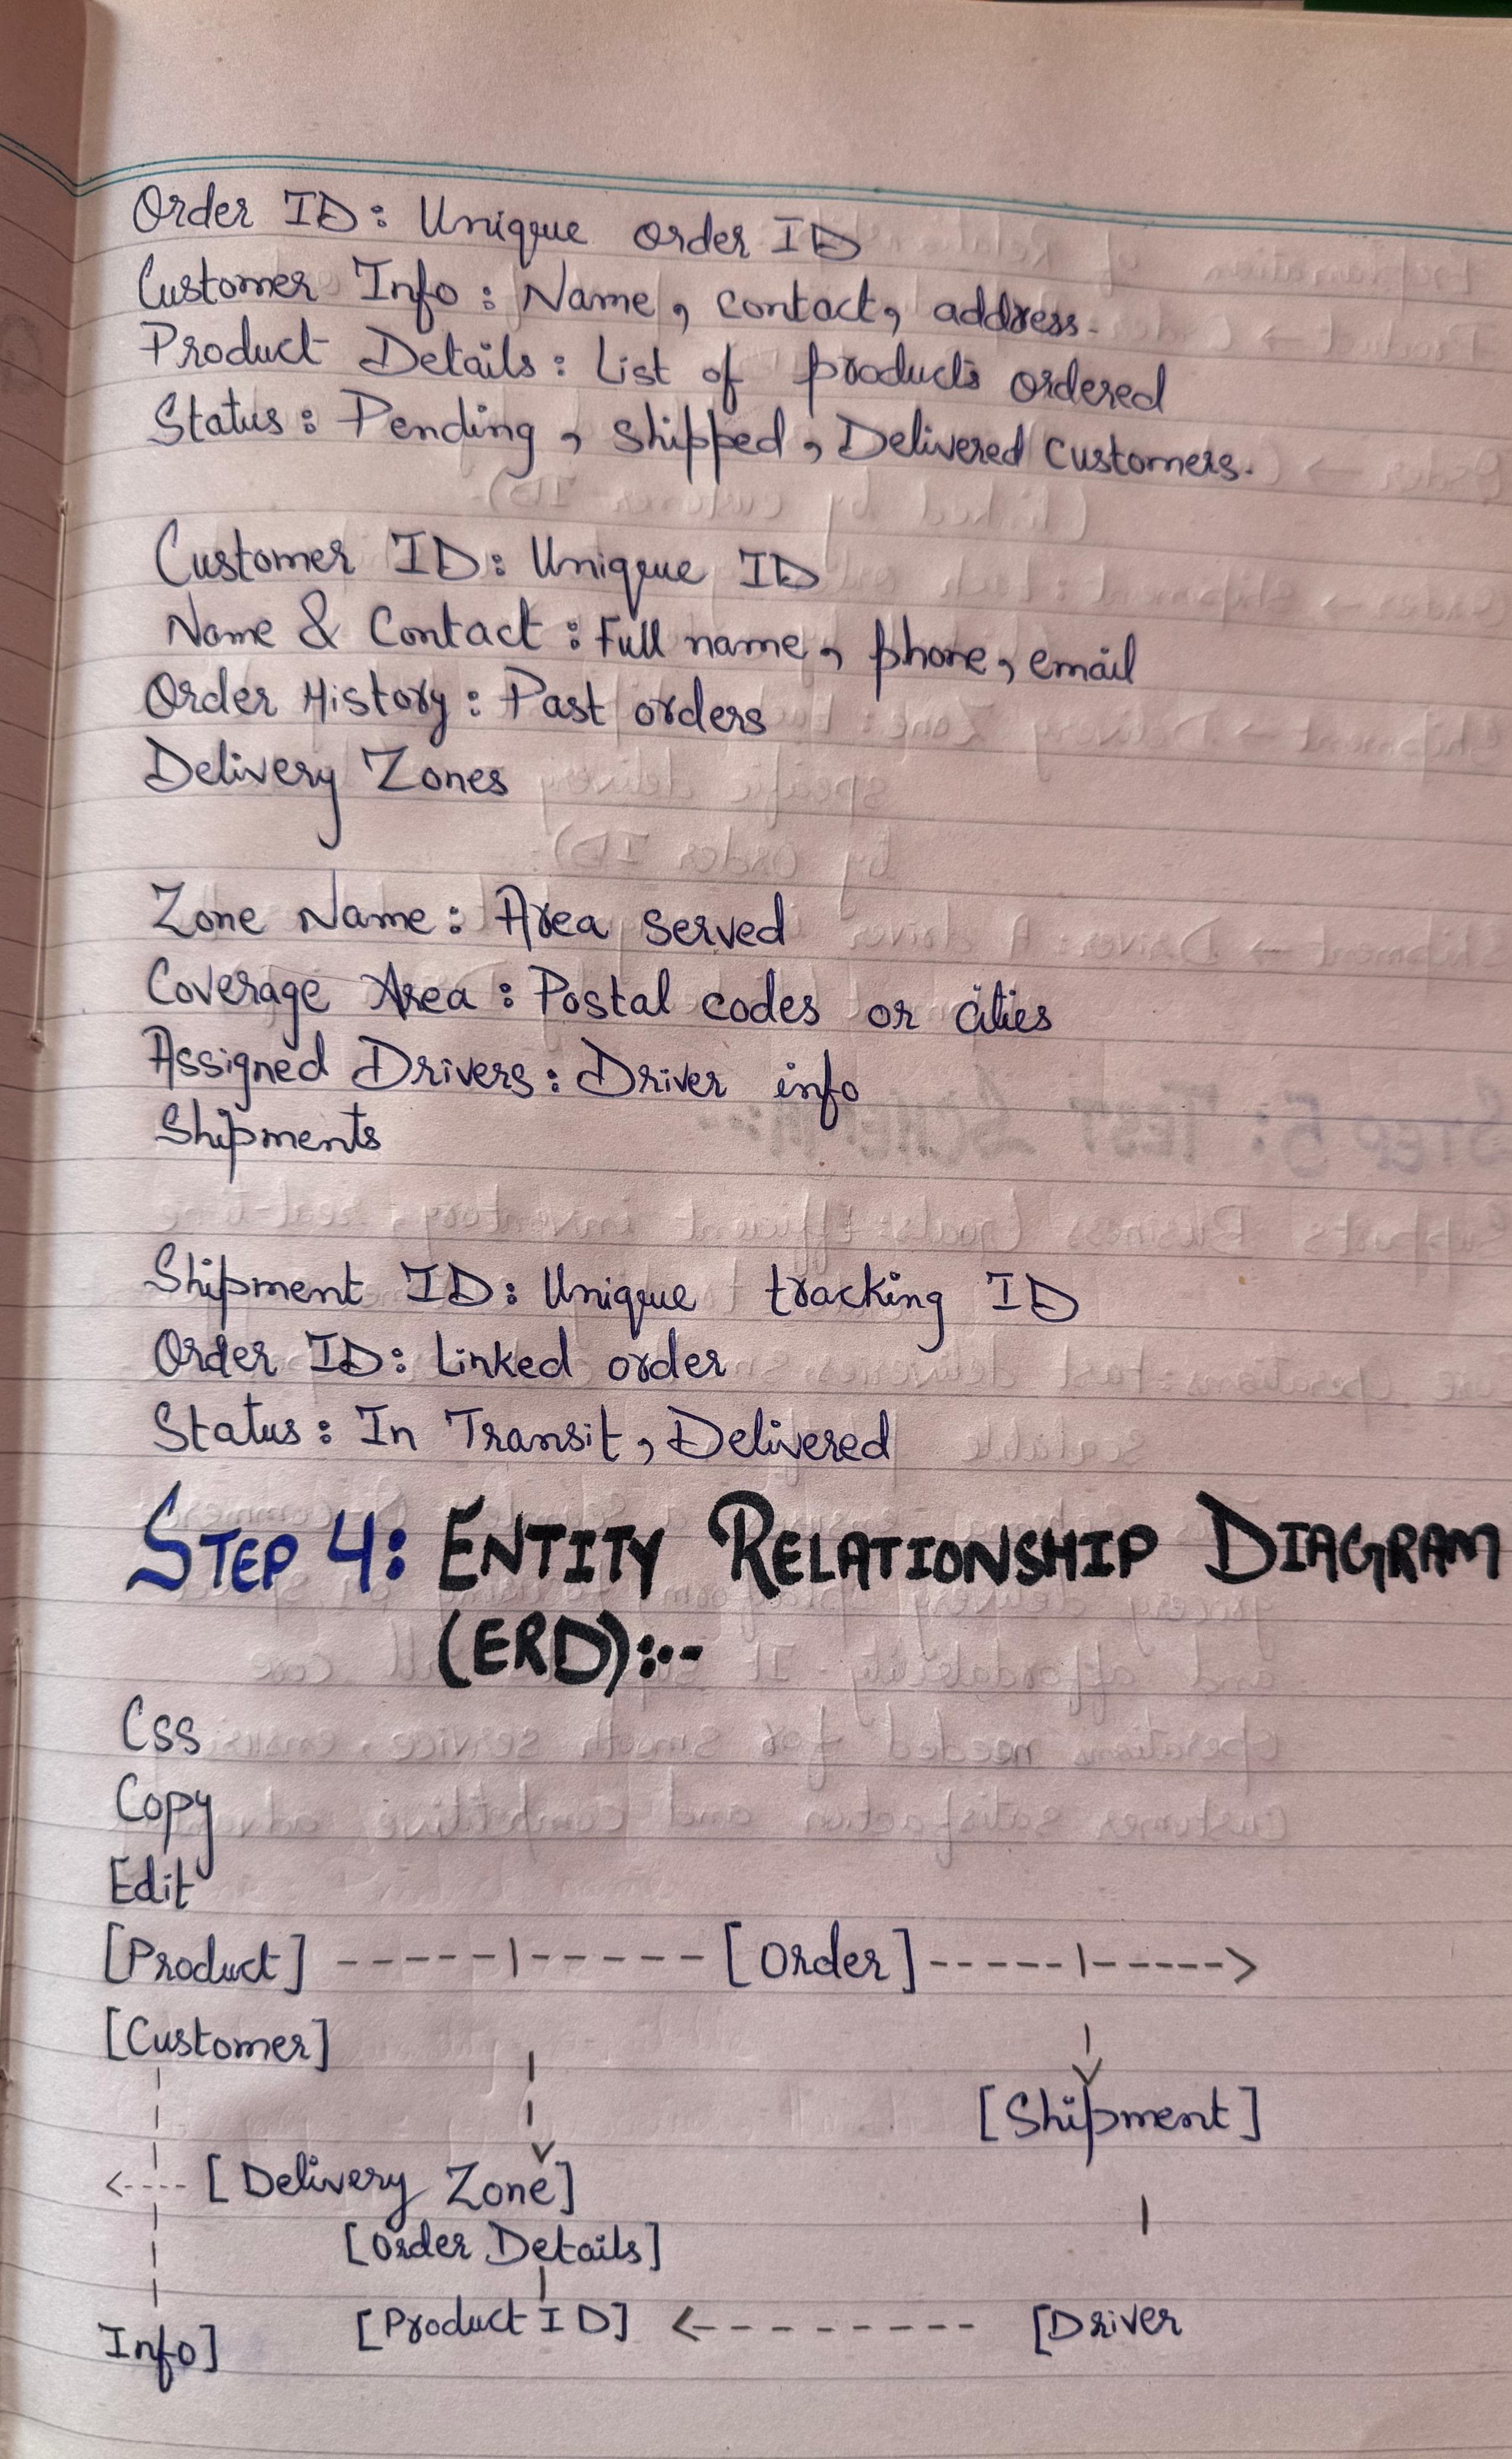 Order ID: Unique order ID
Customer Info: Name, contact, address.
Product Details: List of products ordered
Status: Pending, Shipped, Delivered Customers.
Customer ID: Unique ID
Name & Contact: Full name, phone, email
Order History: Past orders
Delivery Zones
Zone Name: Area served
Coverage Area: Postal codes or cities
Assigned Drivers: Driver info
Shipments
Shipment ID: Unique tracking ID
Order ID: Linked order
Status: In Transit, Delivered
STEP 4: ENTITY RELATIONSHIP DIAGRAM
(ERD):-
Css
Copy
Edit
[Product] -----|----- [Order] -----|----->
[Customer]
[Shipment]
<---- [Delivery Zone]
[Order Details]
Info] [Product ID] <-------- [Driver